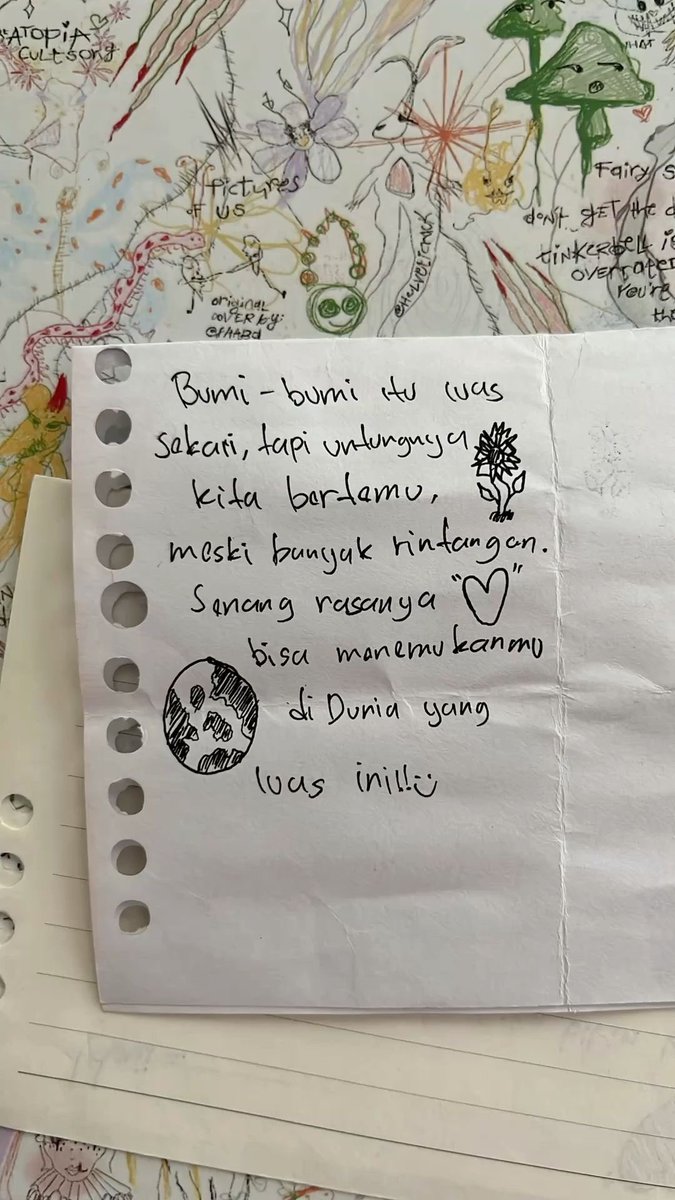 ATOPIA
CULTSONG
Pictures
OF US
original
COVER BY:
@HELVELIENCK
Fairy
don't get the
tinkerbell
OVERRATE
YOU'RE
Bumi-bumi itu luas
sekari, tapi untungnya
kita bertemu,
meski banyak rintangan.
Senang rasanya "♡"
bisa menemukanmu
di Dunia yang
luas ini!!:)